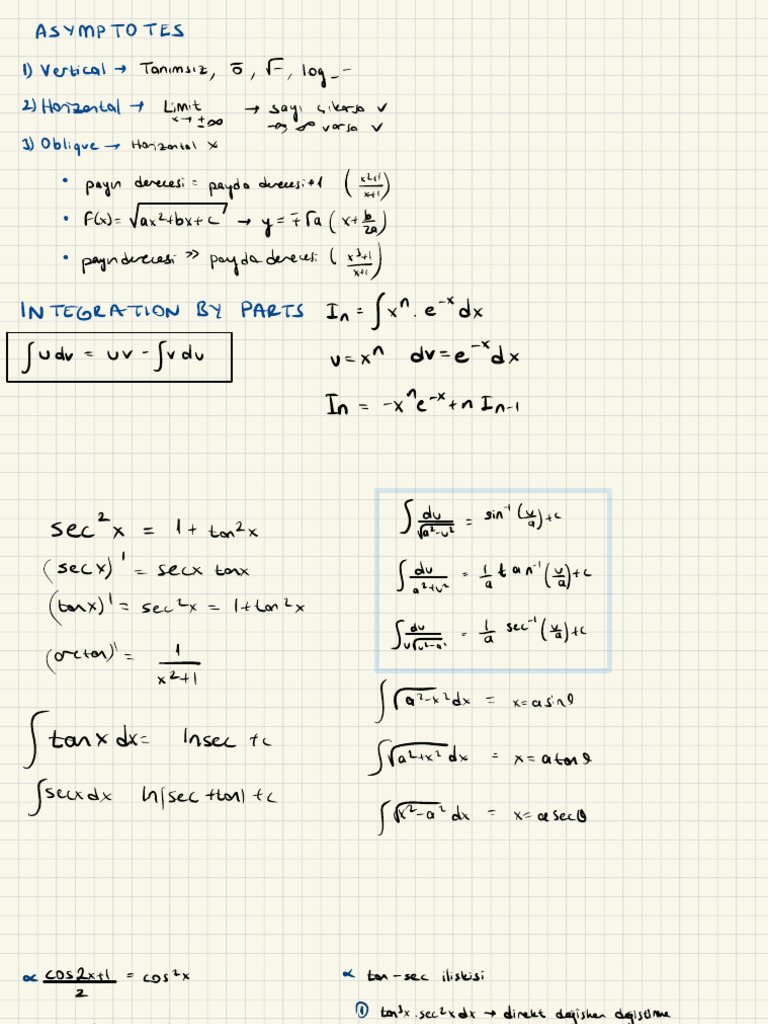 ASYMPTOTES
1) Vertical → Tanımsız, ō, √‾, log_ -
2) Horizontal → Limit x→±∞ → sayı çıkarsa ✓
→ ∞ varsa ✓
3) Oblique → Horizontal ×
• payın derecesi = payda derecesi+1 ( (x²+1)/(x+1) )
• F(x)= √(ax²+bx+c) → y = ∓√a ( x + b/2a )
• payın derecesi >> payda derecesi ( (x³+1)/(x+1) )
INTEGRATION BY PARTS
∫u dv = uv - ∫v du
Iₙ = ∫xⁿ. e⁻ˣ dx
u = xⁿ dv = e⁻ˣ dx
Iₙ = -xⁿe⁻ˣ + n Iₙ₋₁
sec²x = 1 + tan²x
(secx)' = secx tanx
(tanx)' = sec²x = 1+tan²x
(arctan)' = 1/(x²+1)
∫tanx dx = lnsec +c
∫secx dx ln|sec +tan| +c
∫ du/√(a²-u²) = sin⁻¹(u/a)+c
∫ du/(a²+u²) = 1/a tan⁻¹(u/a)+c
∫ du/(u√(u²-a²)) = 1/a sec⁻¹(u/a)+c
∫√(a²-x²) dx = x = a sinθ
∫√(a²+x²) dx = x = a tanθ
∫√(x²-a²) dx = x = a secθ
∝ (cos2x+1)/2 = cos²x
∝ tan-sec ilişkisi
① tan³x.sec²x dx → direkt değişken değiştirme